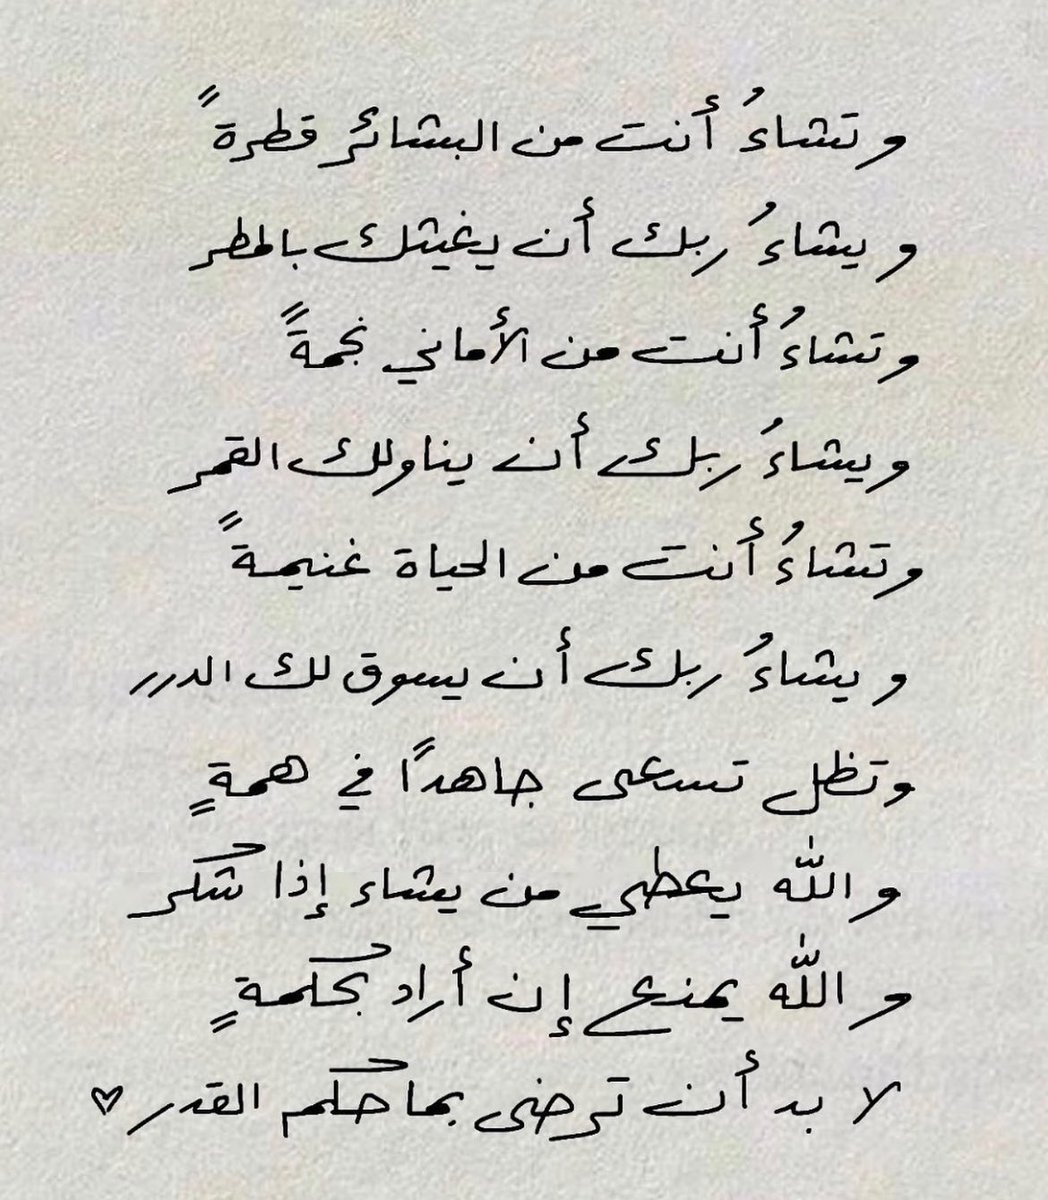 وتشاءُ أنت من البشائر قطرةً
ويشاءُ ربك أن يغيثك بالمطر
وتشاءُ أنت من الأماني نجمةً
ويشاءُ ربك أن يناولك القمر
وتشاءُ أنت من الحياة غنيمةً
ويشاءُ ربك أن يسوق لك الدرر
وتظل تسعى جاهدًا في همةٍ
والله يعطي من يشاء إذا شكر
والله يمنع إن أراد بحكمةٍ
لا بد أن ترضى بما حكم القدر ♡